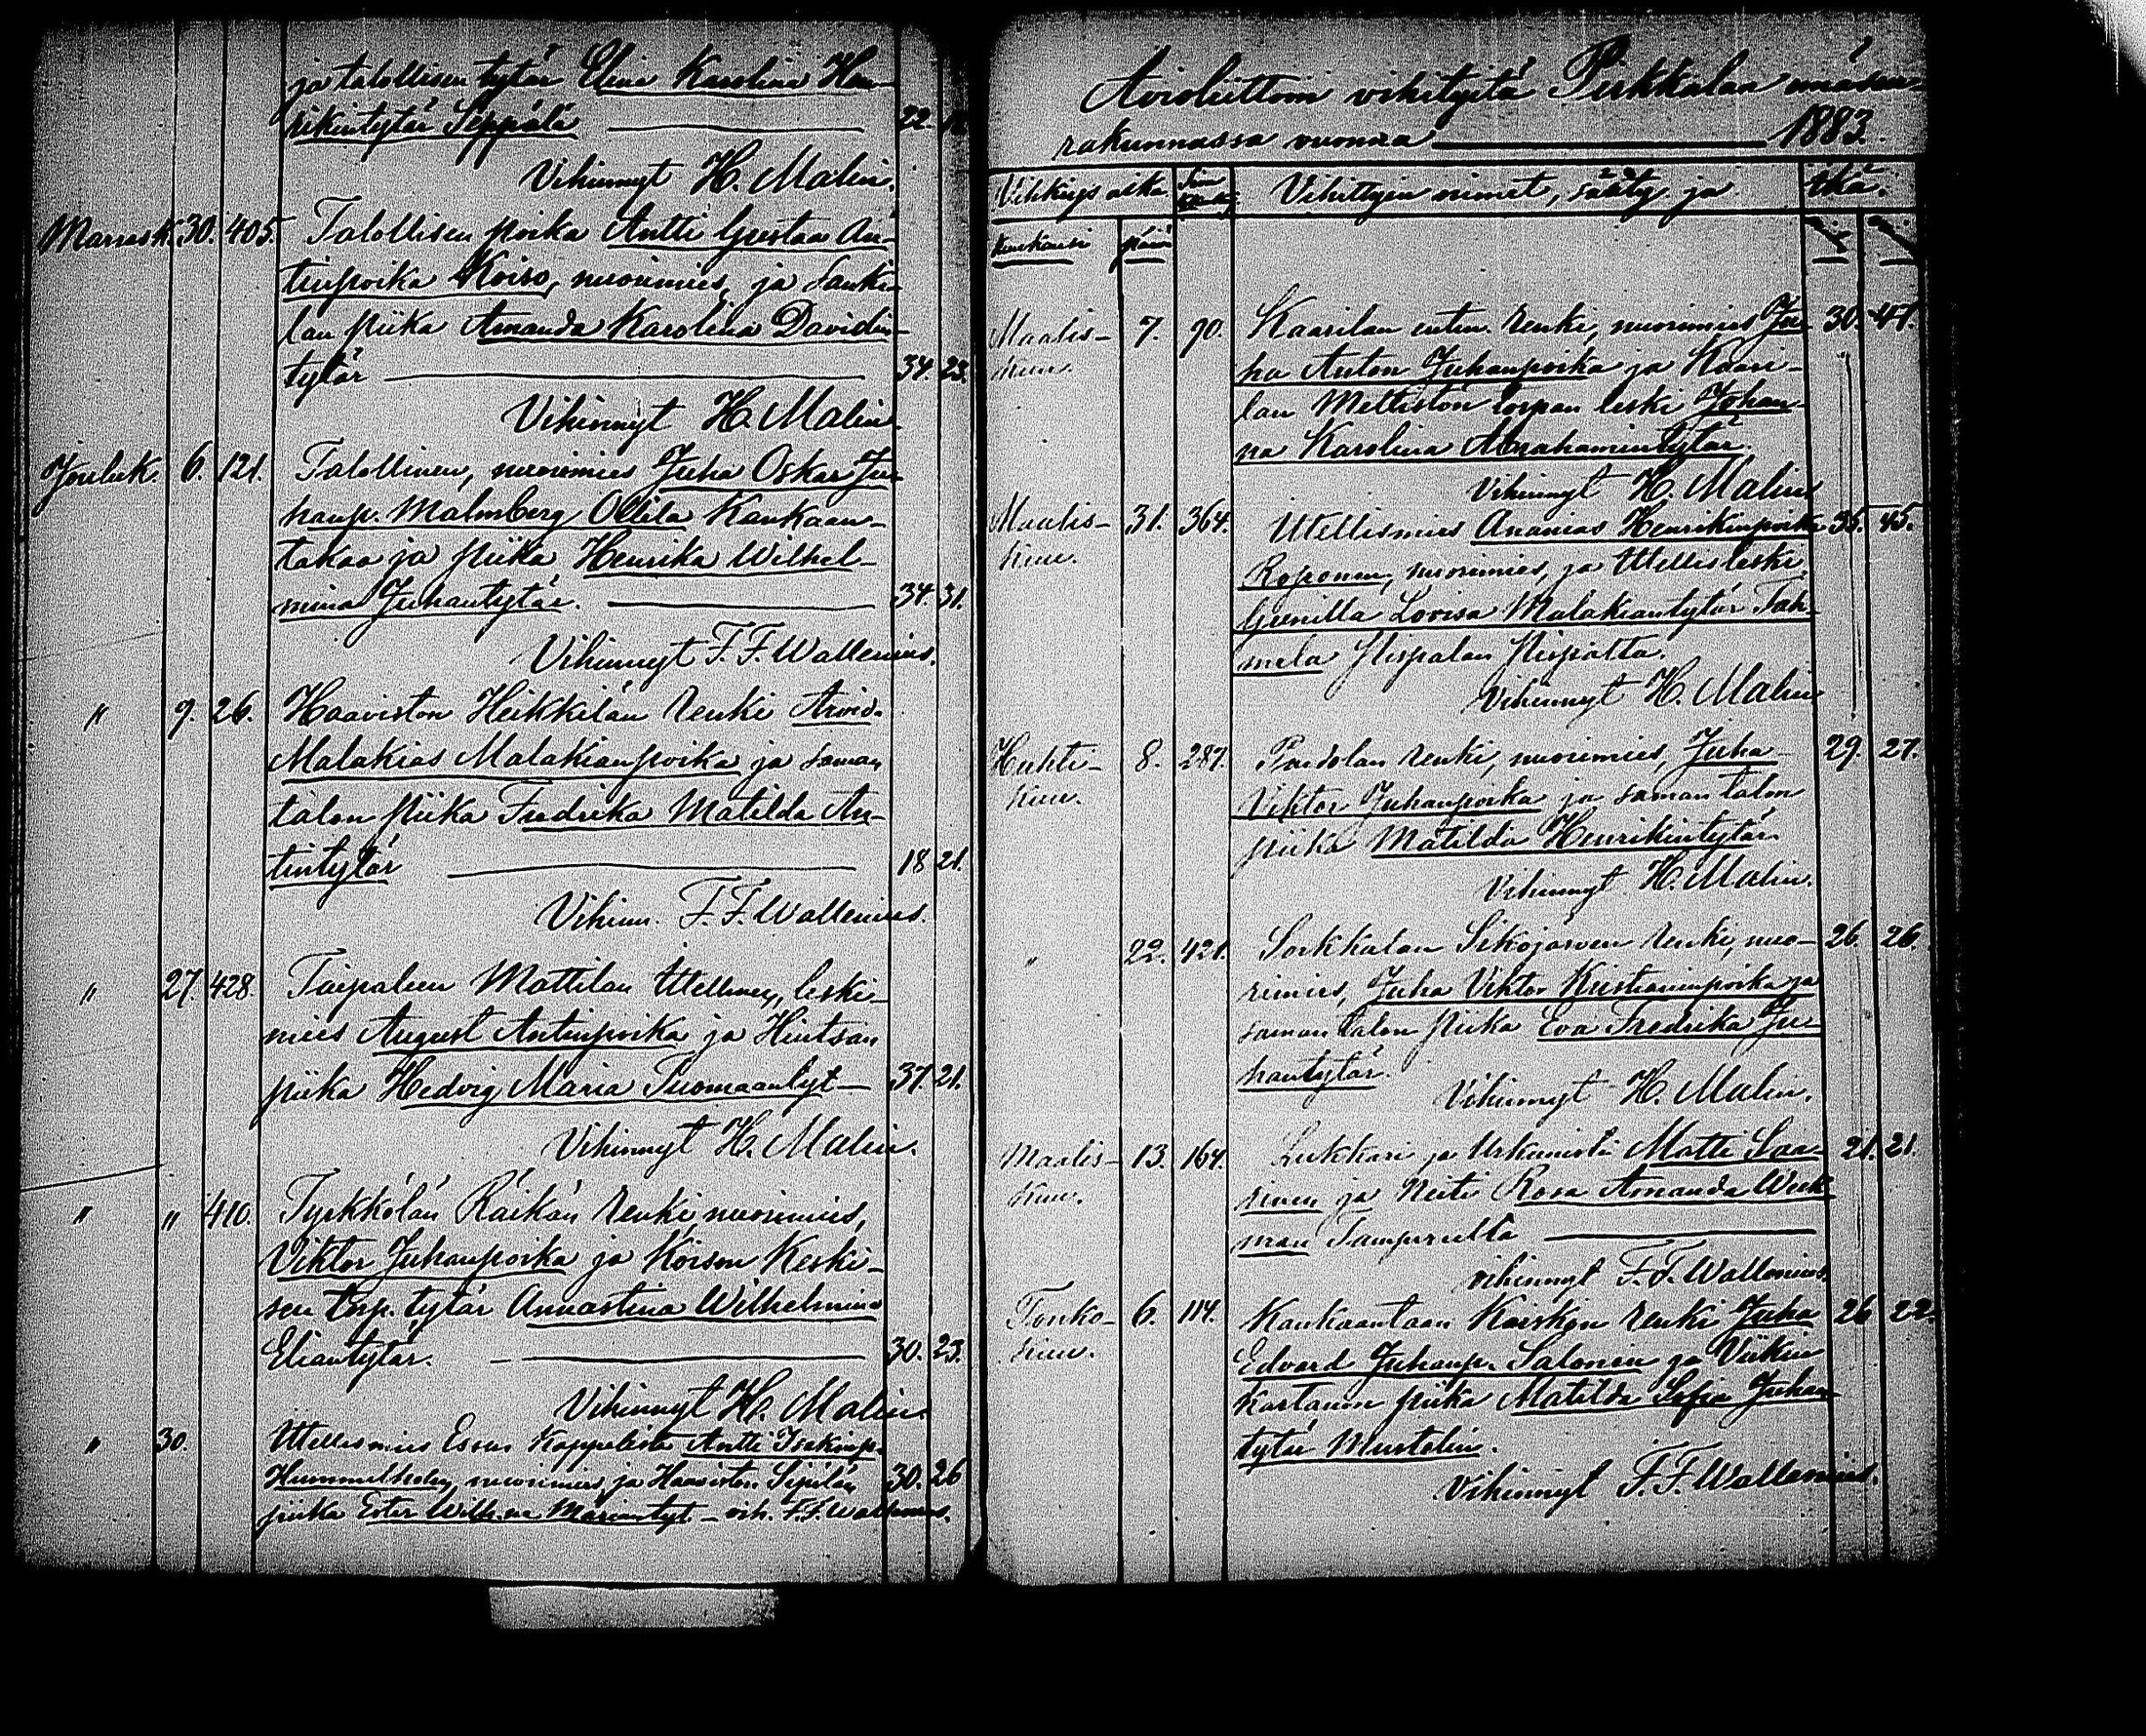 ja talollisen tytär Elina Karolina Hen-
rikintytär Seppälä 22.
Vihinnyt H. Malin.
Marrask. 30. 405. Talollisen poika Antti Gustaa An-
tinpoika Koiso, nuorimies, ja Sanki-
lan piika Amanda Karolina Davidin-
tytär 34. 23.
Vihinnyt H. Malin
Jouluk. 6. 121. Talollinen, nuorimies Juha Oskar Ju-
hanp. Malmberg Ollila Kankaan-
takaa ja piika Henrika Wilhel-
mina Juhantytär. 34. 31.
Vihinnyt F. F. Wallenius.
" 9. 26. Haaviston Heikkilän renki Arvid
Malakias Malakianpoika ja saman
talon piika Fredrika Matilda An-
tintytär 18 21.
Vihinn. F. F. Wallenius.
" 27. 428. Taipaleen Mattilan Itellinen, leski-
mies August Antinpoika ja Hintsan
piika Hedvig Maria Tuomaantyt 37. 21.
Vihinnyt H. Malin.
" " 410. Tyrkkölän Räikän renki, nuorimies,
Viktor Juhanpoika ja Koison Keski-
sen torp. tytär Annastina Wilhelmina
Eliantytär. 30. 23.
Vihinnyt H. Malin.
" 30. Itellismies Essun Koppelista Antti Isakinp.
Hummelholm, nuorimies, ja Haaviston Sipilän 30. 26
piika Ester Wilh:na Mariantyt – vih. F. F. Wallenius.
Avioliittoon vihityitä Pirkkalan emäseu-
rakunnassa vuonna 1883.
Vihkiys aika Vihittyin nimet, sääty ja ikä.
Kuukausi päivä
Maalis- 7. 90. Kaarilan entin. renki, nuorimies Ju- 30. 47.
kuu. ha Anton Juhanpoika ja Kaari-
lan Melliston torpan leski Johan-
na Karolina Abrahamintytär.
Vihinnyt H. Malin
Maalis- 31. 364. Itellismies Ananias Henrikinpoika 35. 45.
kuu. Roponen, nuorimies, ja Itellisleski
Gunilla Lovisa Malakiantytär Tah-
mela Pispalan Pispalta.
Vihinnyt H. Malin
Huhti- 8. 287. Pardolan renki, nuorimies, Juha 29. 27.
kuu. Viktor Juhanpoika ja saman talon
piika Matilda Henrikintytär.
Vihinnyt H. Malin.
" 22. 421. Sorkkalan Sikojärven renki, nuo- 26. 26.
rimies, Juha Viktor Kristianinpoika ja
saman talon piika Eva Fredrika Ju-
hantytär.
Vihinnyt H. Malin.
Maalis- 13. 164. Lukkari ja Urkunisti Matti Saa- 21. 21.
kuu. rinen ja Neiti Rosa Amanda Weck-
man Tampereelta
vihinnyt F. F. Wallenius
Touko- 6. 114. Kankaantaan Kaiskon renki Juha 26 22.
kuu. Edvard Juhanp. Salonen ja Viikin
kartanon piika Matilda Sofia Juhan-
tytär Mustelin.
Vihinnyt F. F. Wallenius.